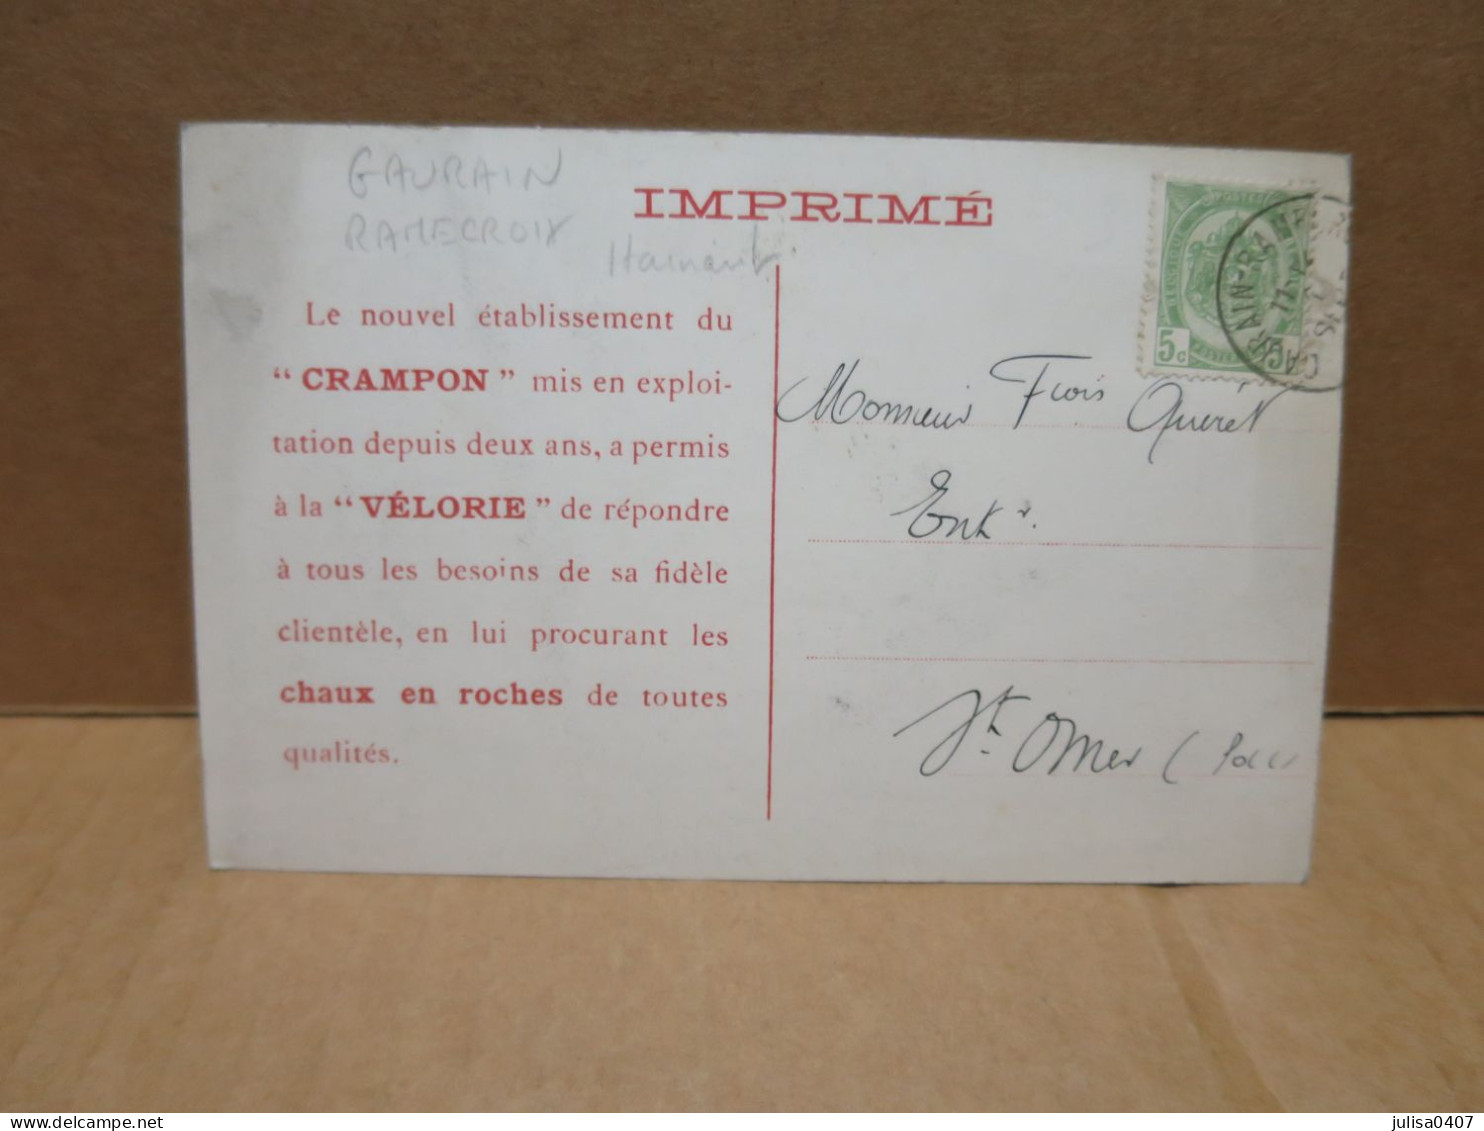 GAURAIN
RAMECROIX
Hainaut
IMPRIMÉ
Le nouvel établissement du
“ CRAMPON ” mis en exploi-
tation depuis deux ans, a permis
à la “ VÉLORIE ” de répondre
à tous les besoins de sa fidèle
clientèle, en lui procurant les
chaux en roches de toutes
qualités.
5c
GAURAIN-RAME
Monsieur Frois Quéret
Entr.
St. Omer (
julisa0407